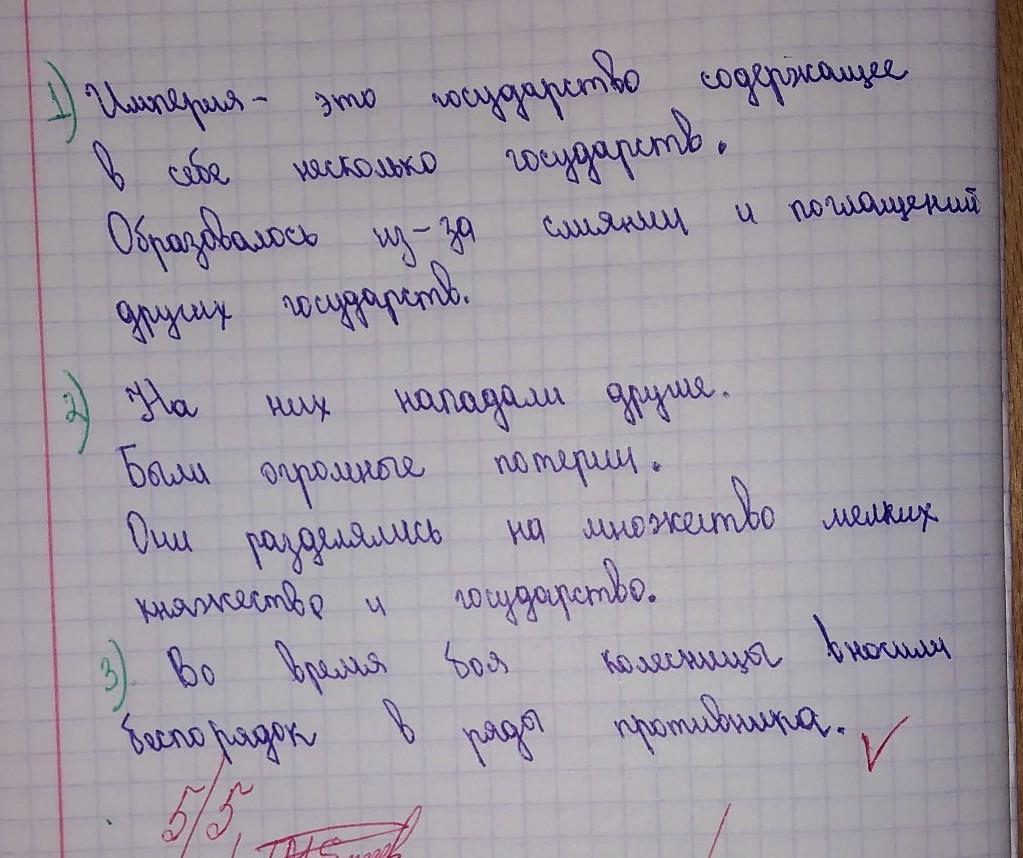 1) Империя - это государство содержащее
в себе несколько государств.
Образовалось из-за слиянии и поглащений
других государств.
2) На них нападали другие.
Были огромные потерии.
Они разделялись на множество мелких
княжество и государство.
3) Во время боя колесницы вносили
беспорядок в ряды противника.
5/5